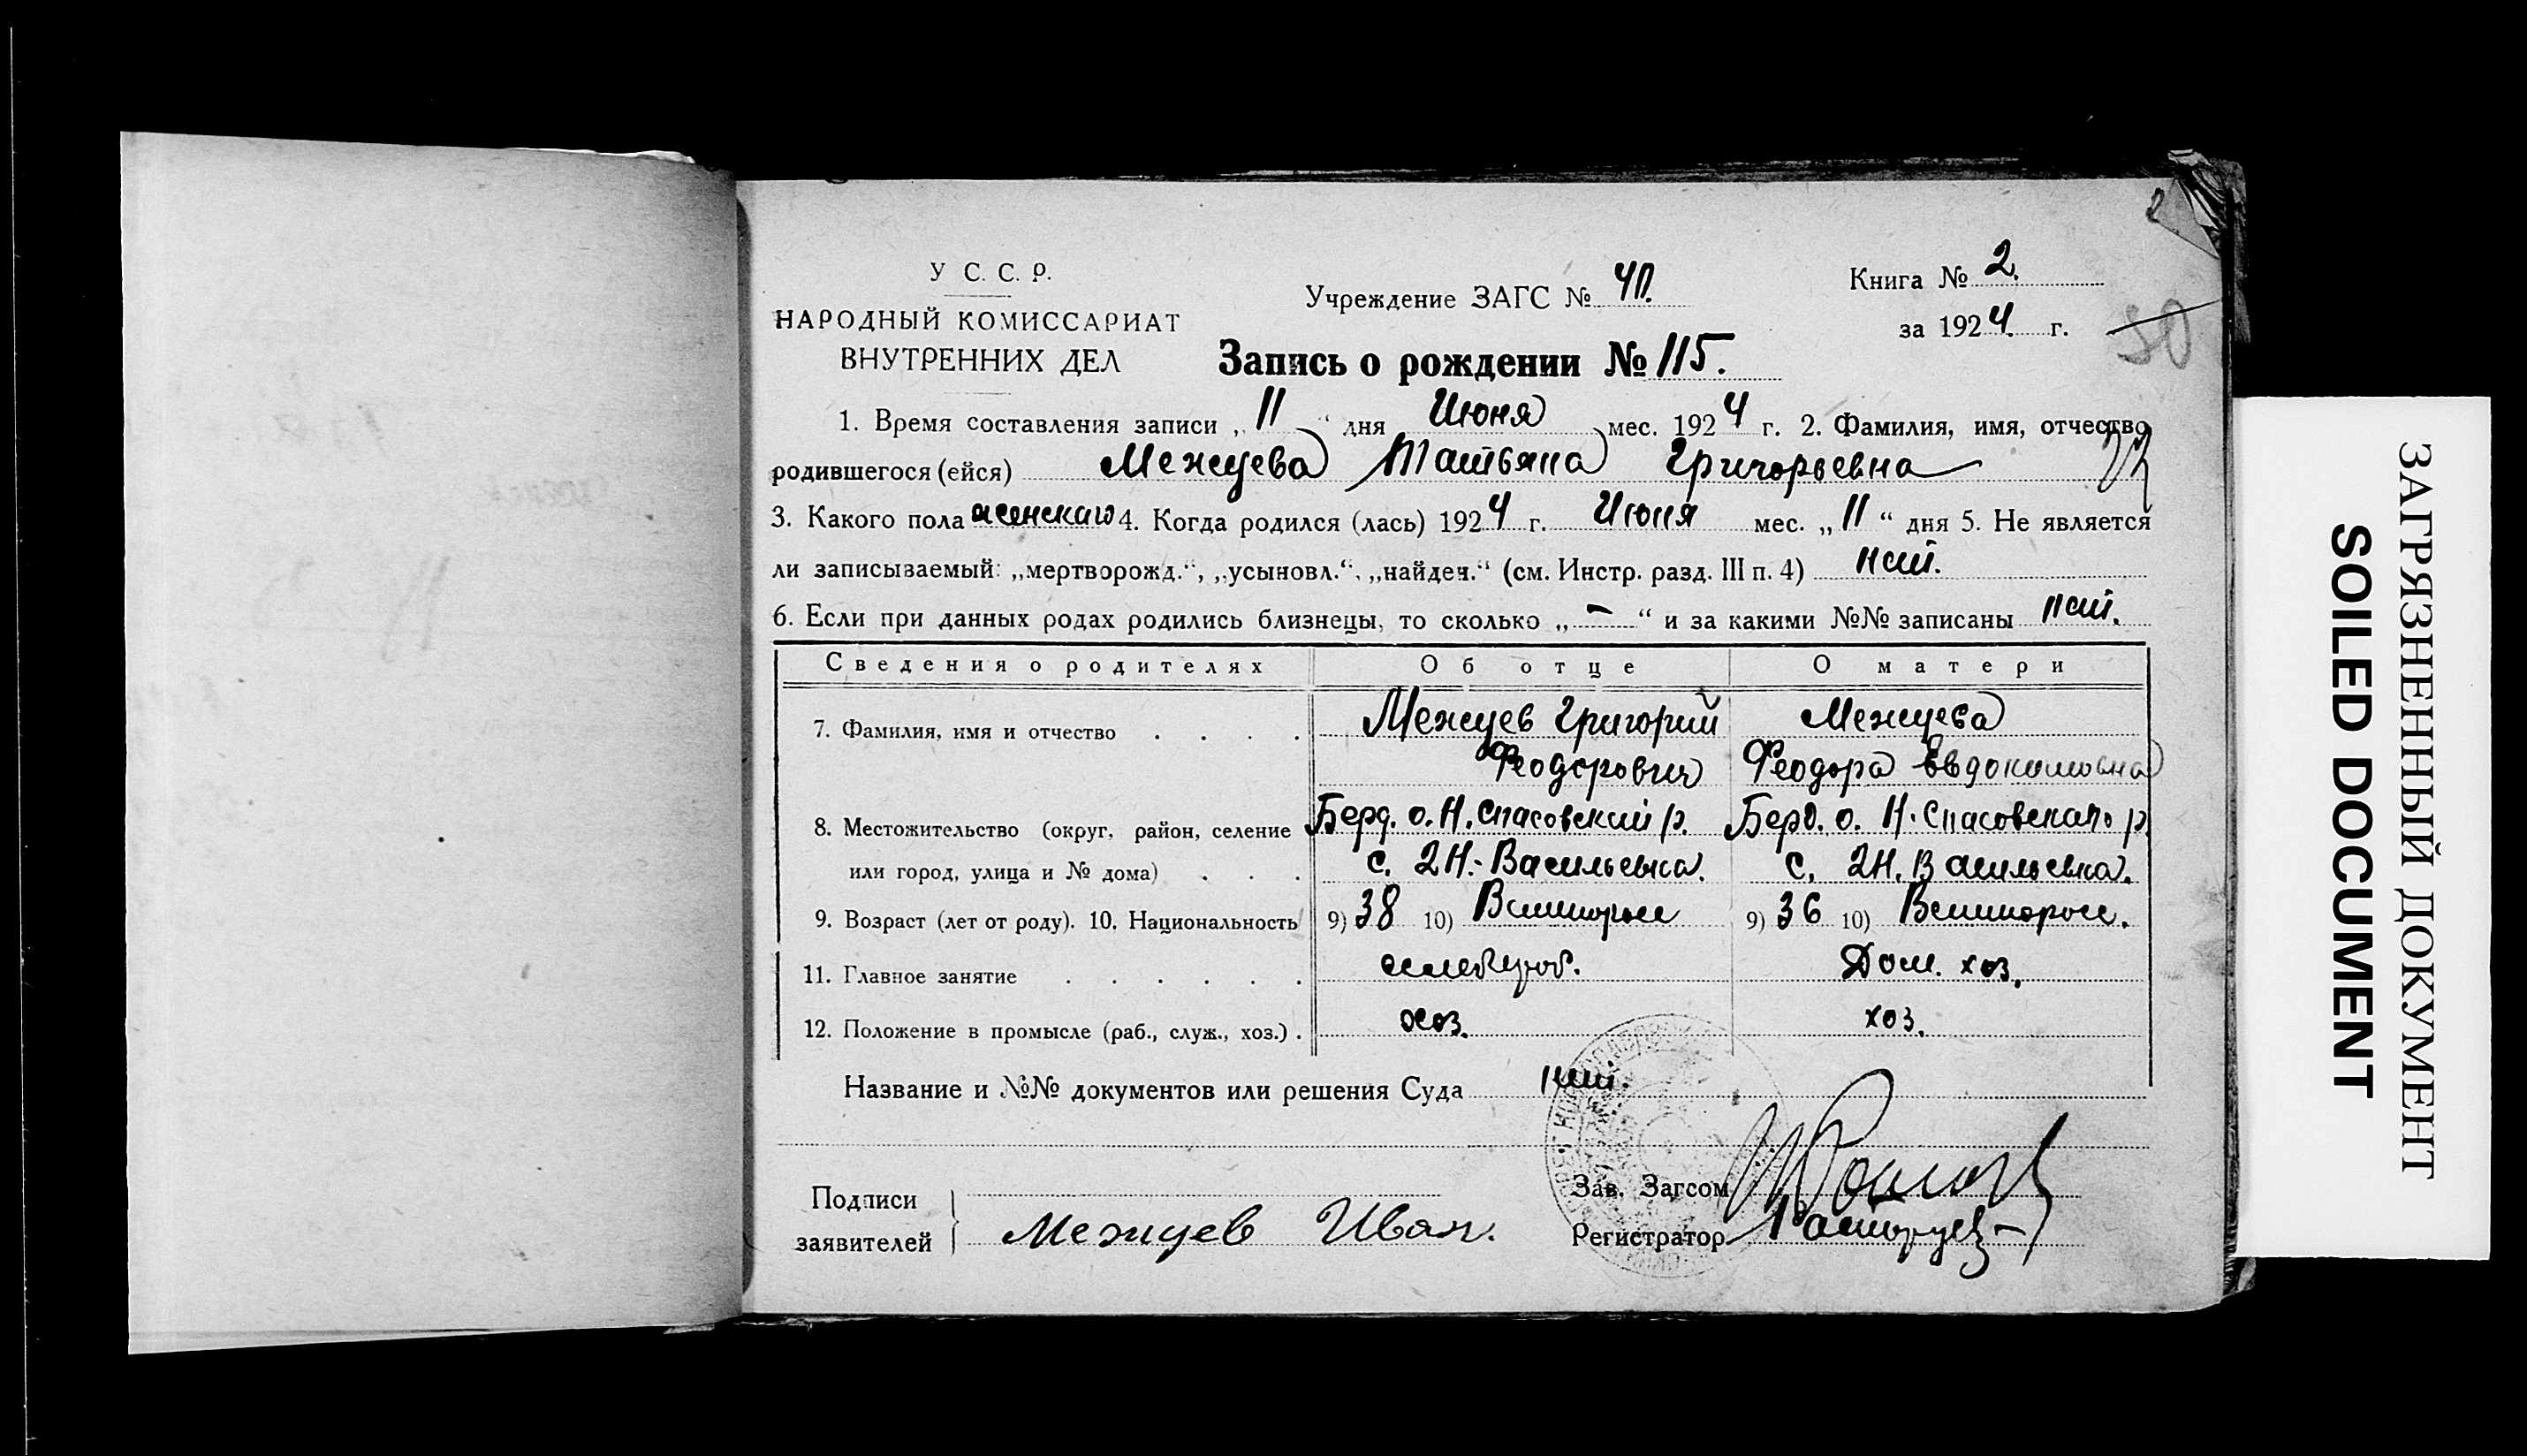 2
У С. С. Р.
НАРОДНЫЙ КОМИССАРИАТ
ВНУТРЕННИХ ДЕЛ
Учреждение ЗАГС № 40.
Книга № 2.
за 1924 г.
50
Запись о рождении № 115.
1. Время составления записи „ 11 “ дня Июня мес. 1924 г. 2. Фамилия, имя, отчество
родившегося (ейся) Межуева Татьяна Григорьевна
3. Какого пола женскаго 4. Когда родился (лась) 1924 г. Июня мес. „ 11 “ дня 5. Не является
ли записываемый: „мертворожд.“, „усыновл.“, „найден.“ (см. Инстр. разд. III п. 4) нет.
6. Если при данных родах родились близнецы, то сколько „ — “ и за какими №№ записаны нет.
Сведения о родителях Об отце О матери
7. Фамилия, имя и отчество . . . . Межуев Григорий Межуева
Феодорович Феодора Евдокимовна
8. Местожительство (округ, район, селение Берд. о. Н. Спасовский р. Берд. о. Н. Спасовскаго р.
или город, улица и № дома) . . . с. 2Н.-Васильевка. с. 2Н. Васильевка.
9. Возраст (лет от роду). 10. Национальность 9) 38 10) 9) 36 10)
11. Главное занятие . . . . . . Дом. хоз.
12. Положение в промысле (раб., служ., хоз.) . хоз. хоз.
Название и №№ документов или решения Суда нет.
Подписи
заявителей Межуев Иван.
Зав. Загсом
Регистратор
ЗАГРЯЗНЕННЫЙ ДОКУМЕНТ
SOILED DOCUMENT